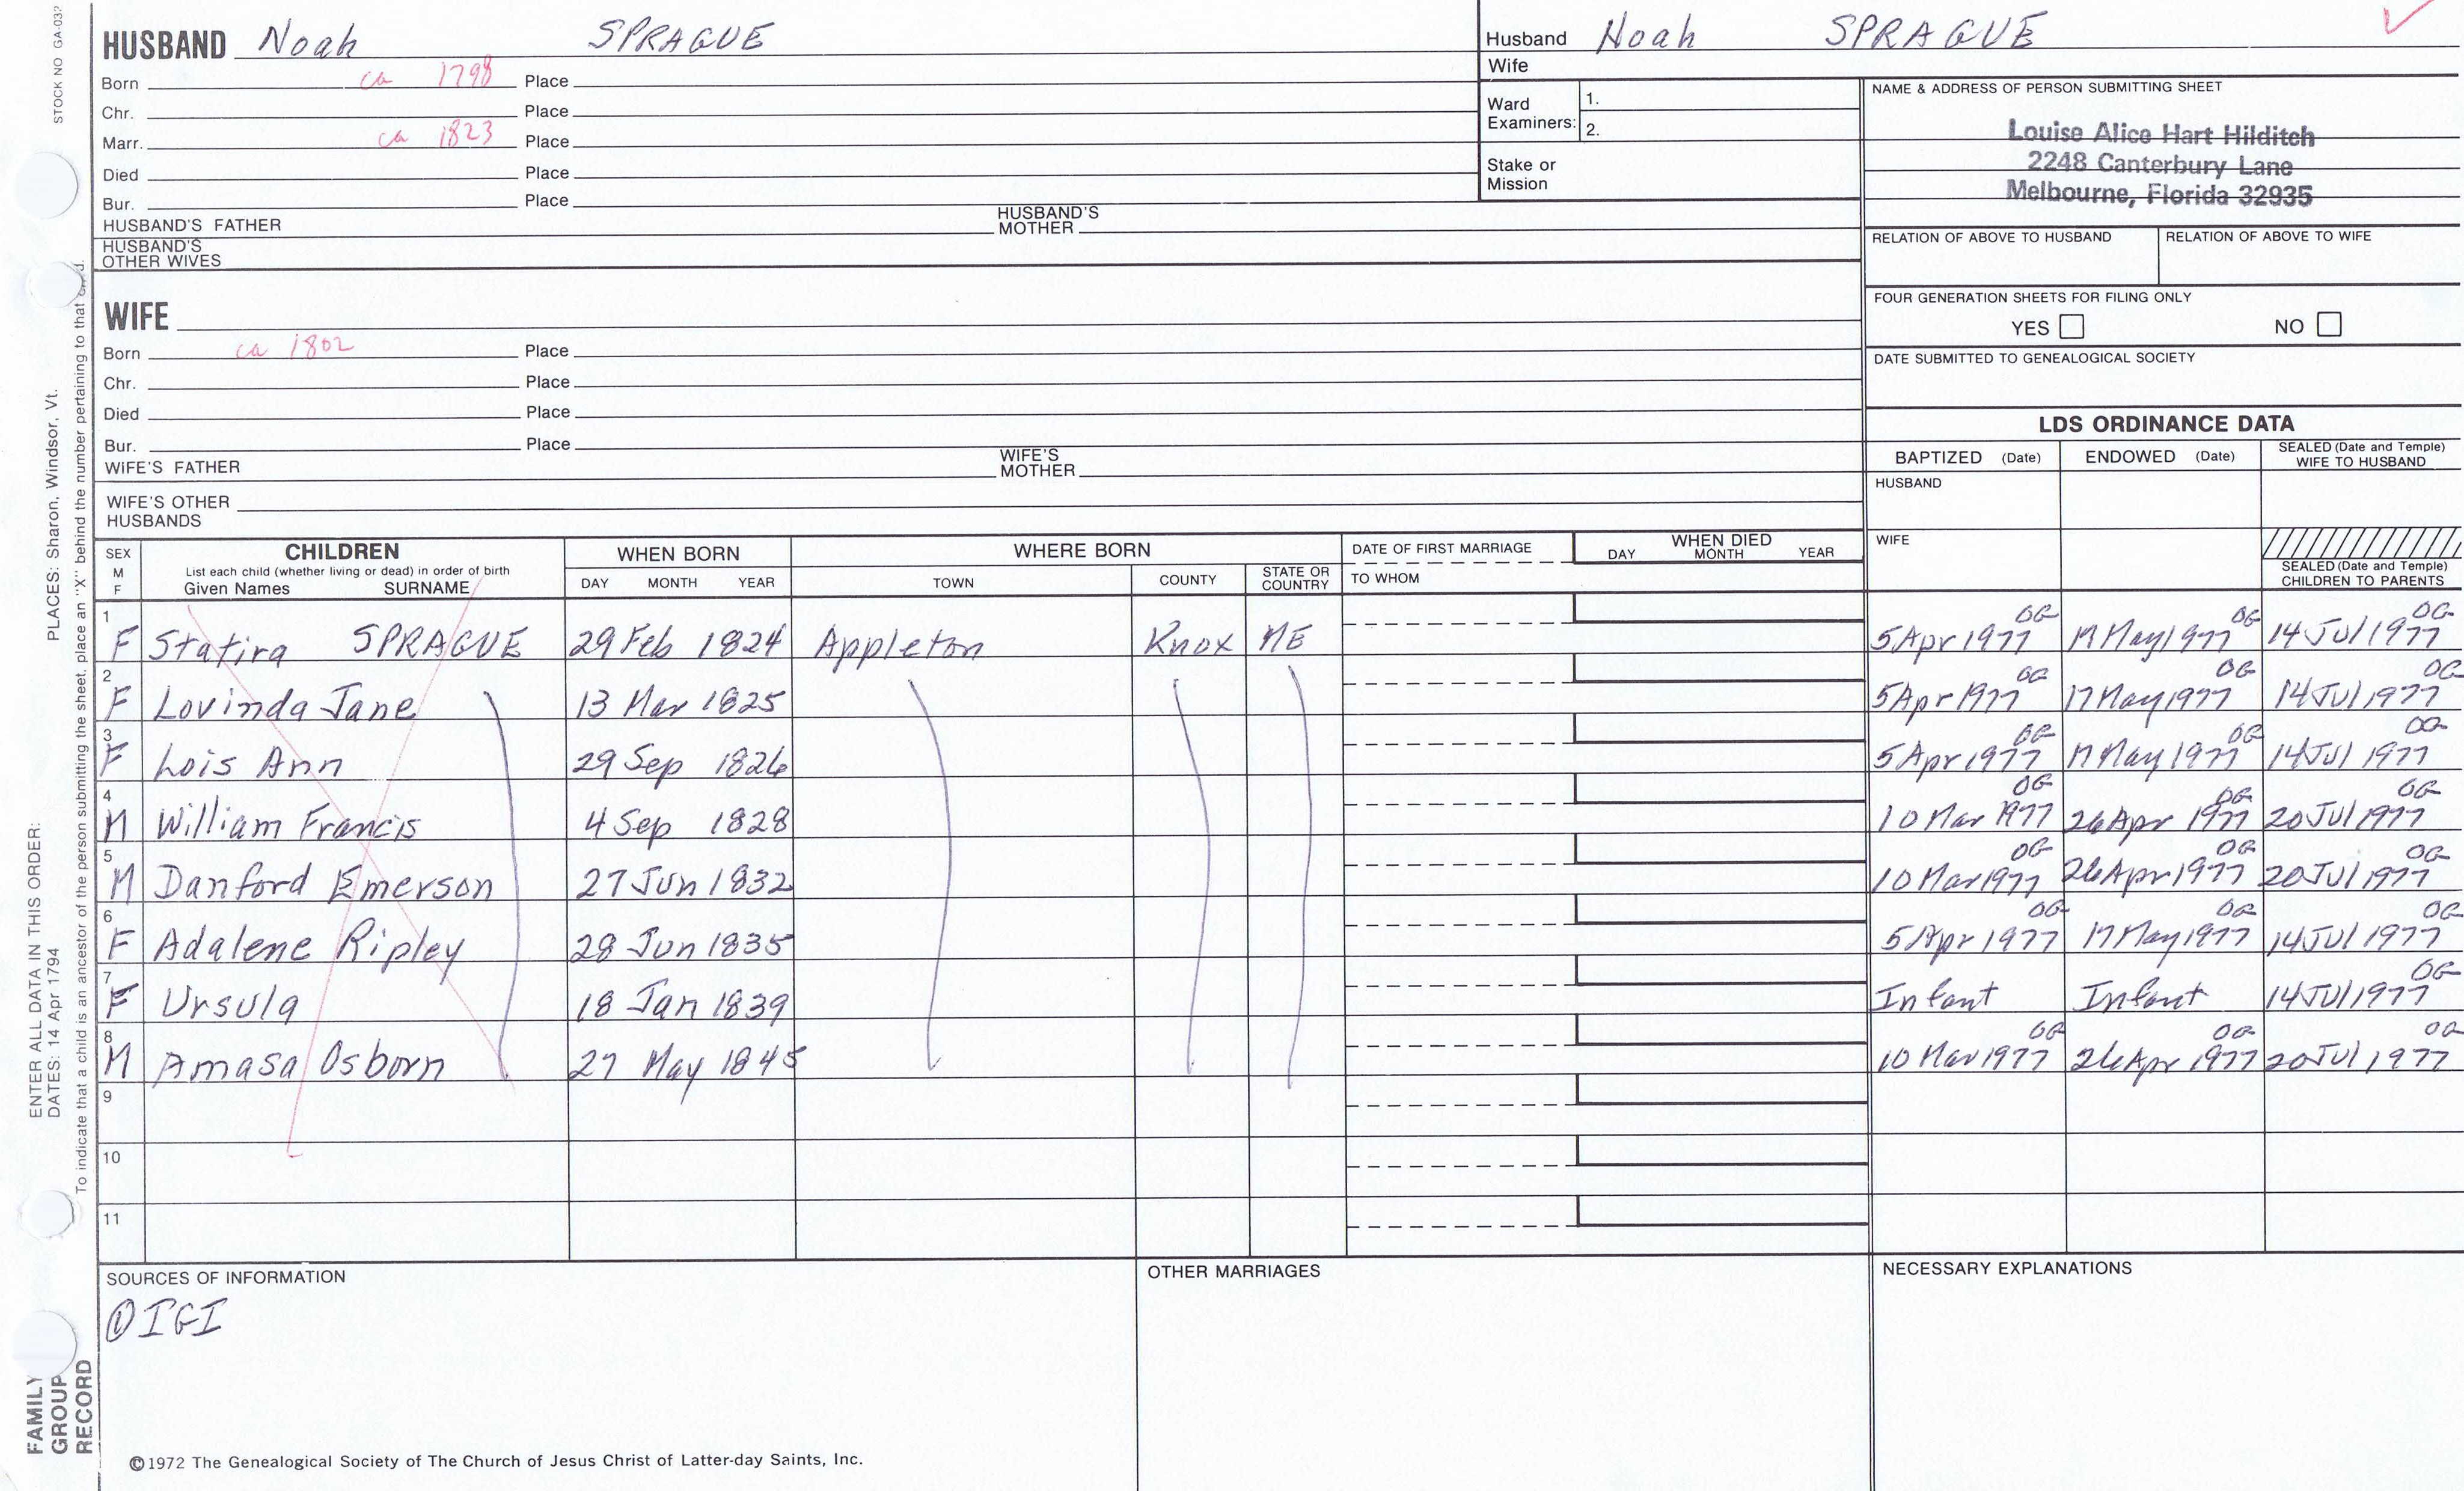 STOCK NO GA-032
HUSBAND Noah SPRAGUE
Born ca 1798 Place
Chr. Place
Marr. ca 1823 Place
Died Place
Bur. Place
HUSBAND'S FATHER HUSBAND'S MOTHER
HUSBAND'S OTHER WIVES
Husband Noah SPRAGUE
Wife
Ward Examiners: 1.
2.
Stake or Mission
NAME & ADDRESS OF PERSON SUBMITTING SHEET
Louise Alice Hart Hilditch
2248 Canterbury Lane
Melbourne, Florida 32935
RELATION OF ABOVE TO HUSBAND RELATION OF ABOVE TO WIFE
FOUR GENERATION SHEETS FOR FILING ONLY
YES NO
DATE SUBMITTED TO GENEALOGICAL SOCIETY
WIFE
Born ca 1802 Place
Chr. Place
Died Place
Bur. Place
WIFE'S FATHER WIFE'S MOTHER
WIFE'S OTHER HUSBANDS
LDS ORDINANCE DATA
BAPTIZED (Date) ENDOWED (Date) SEALED (Date and Temple) WIFE TO HUSBAND
HUSBAND
WIFE
SEALED (Date and Temple) CHILDREN TO PARENTS
SEX M F CHILDREN WHEN BORN WHERE BORN DATE OF FIRST MARRIAGE WHEN DIED
List each child (whether living or dead) in order of birth
Given Names SURNAME DAY MONTH YEAR TOWN COUNTY STATE OR COUNTRY TO WHOM DAY MONTH YEAR
1 F Statira SPRAGUE 29 Feb 1824 Appleton Knox ME 5 Apr 1977 OG 17 May 1977 OG 14 Jul 1977 OG
2 F Lovinda Jane 13 Mar 1825 5 Apr 1977 OG 17 May 1977 OG 14 Jul 1977 OG
3 F Lois Ann 29 Sep 1826 5 Apr 1977 OG 17 May 1977 OG 14 Jul 1977 OG
4 M William Francis 4 Sep 1828 10 Mar 1977 OG 26 Apr 1977 OG 20 Jul 1977 OG
5 M Danford Emerson 27 Jun 1832 10 Mar 1977 OG 26 Apr 1977 OG 20 Jul 1977 OG
6 F Adalene Ripley 28 Jun 1835 5 Apr 1977 OG 17 May 1977 OG 14 Jul 1977 OG
7 F Ursula 18 Jan 1839 Infant Infant 14 Jul 1977 OG
8 M Amasa Osborn 27 May 1845 10 Mar 1977 OG 26 Apr 1977 OG 20 Jul 1977 OG
9
10
11
SOURCES OF INFORMATION OTHER MARRIAGES NECESSARY EXPLANATIONS
① IGI
©1972 The Genealogical Society of The Church of Jesus Christ of Latter-day Saints, Inc.
FAMILY GROUP RECORD
ENTER ALL DATA IN THIS ORDER:
DATES: 14 Apr 1794
PLACES: Sharon, Windsor, Vt.
To indicate that a child is an ancestor of the person submitting the sheet, place an "X" behind the number pertaining to that